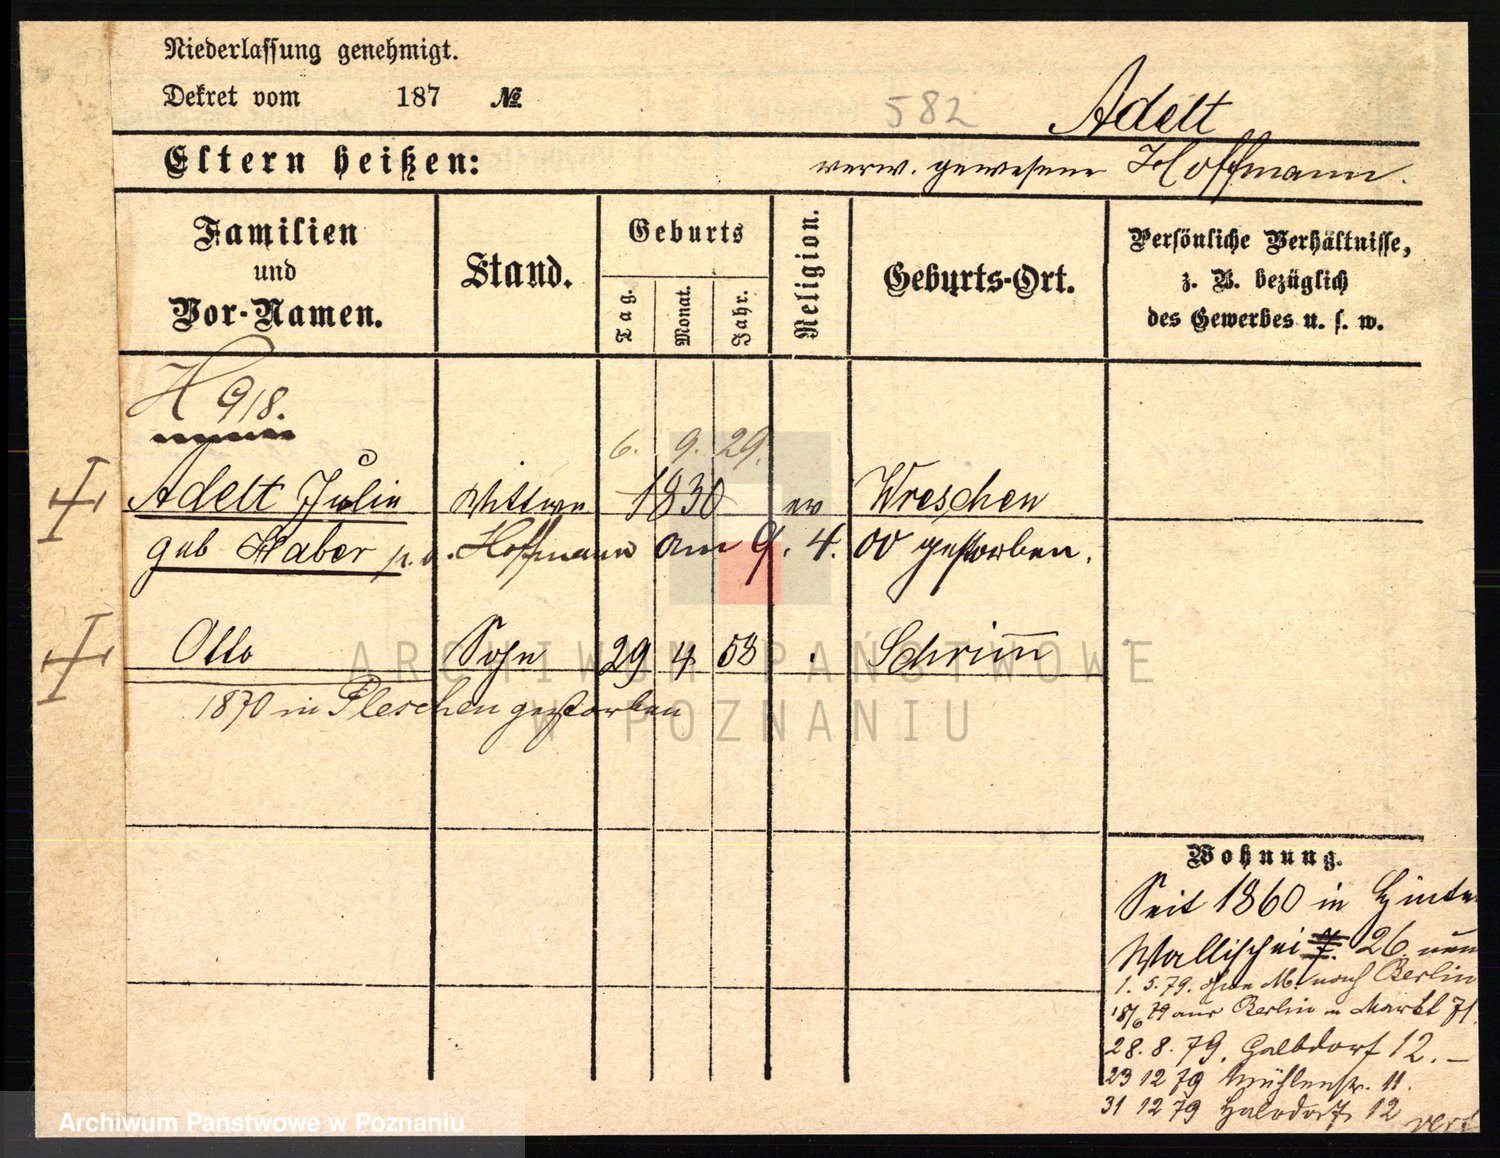 Niederlassung genehmigt.
Dekret vom 187 №
582
Adelt
Eltern heißen:
verw. gewesene Hoffmann.
Familien
und
Vor-Namen.
Stand.
Geburts
Tag.
Monat.
Jahr.
Religion.
Geburts-Ort.
Persönliche Verhältnisse,
z. B. bezüglich
des Gewerbes u. s. w.
H 918.
6. 9. 29.
Adelt Julie Wittwe 1830 ev Wreschen
geb Haber Hoffmann am 9. 4. 00 gestorben.
Otto Sohn 29 4 58 Schrimm
1870 in Pleschen gestorben
Wohnung.
Seit 1860 in Hinter
Wallischei 7. 26
1. 5. 79. ohne M. nach Berlin
18/6 79 aus Berlin Markt 71.
28. 8. 79. Halbdorf 12. –
23 12 79 Mühlenstr. 11.
31 12 79 Halbdorfs. 12
ARCHIWUM PAŃSTWOWE
W POZNANIU
Archiwum Państwowe w Poznaniu